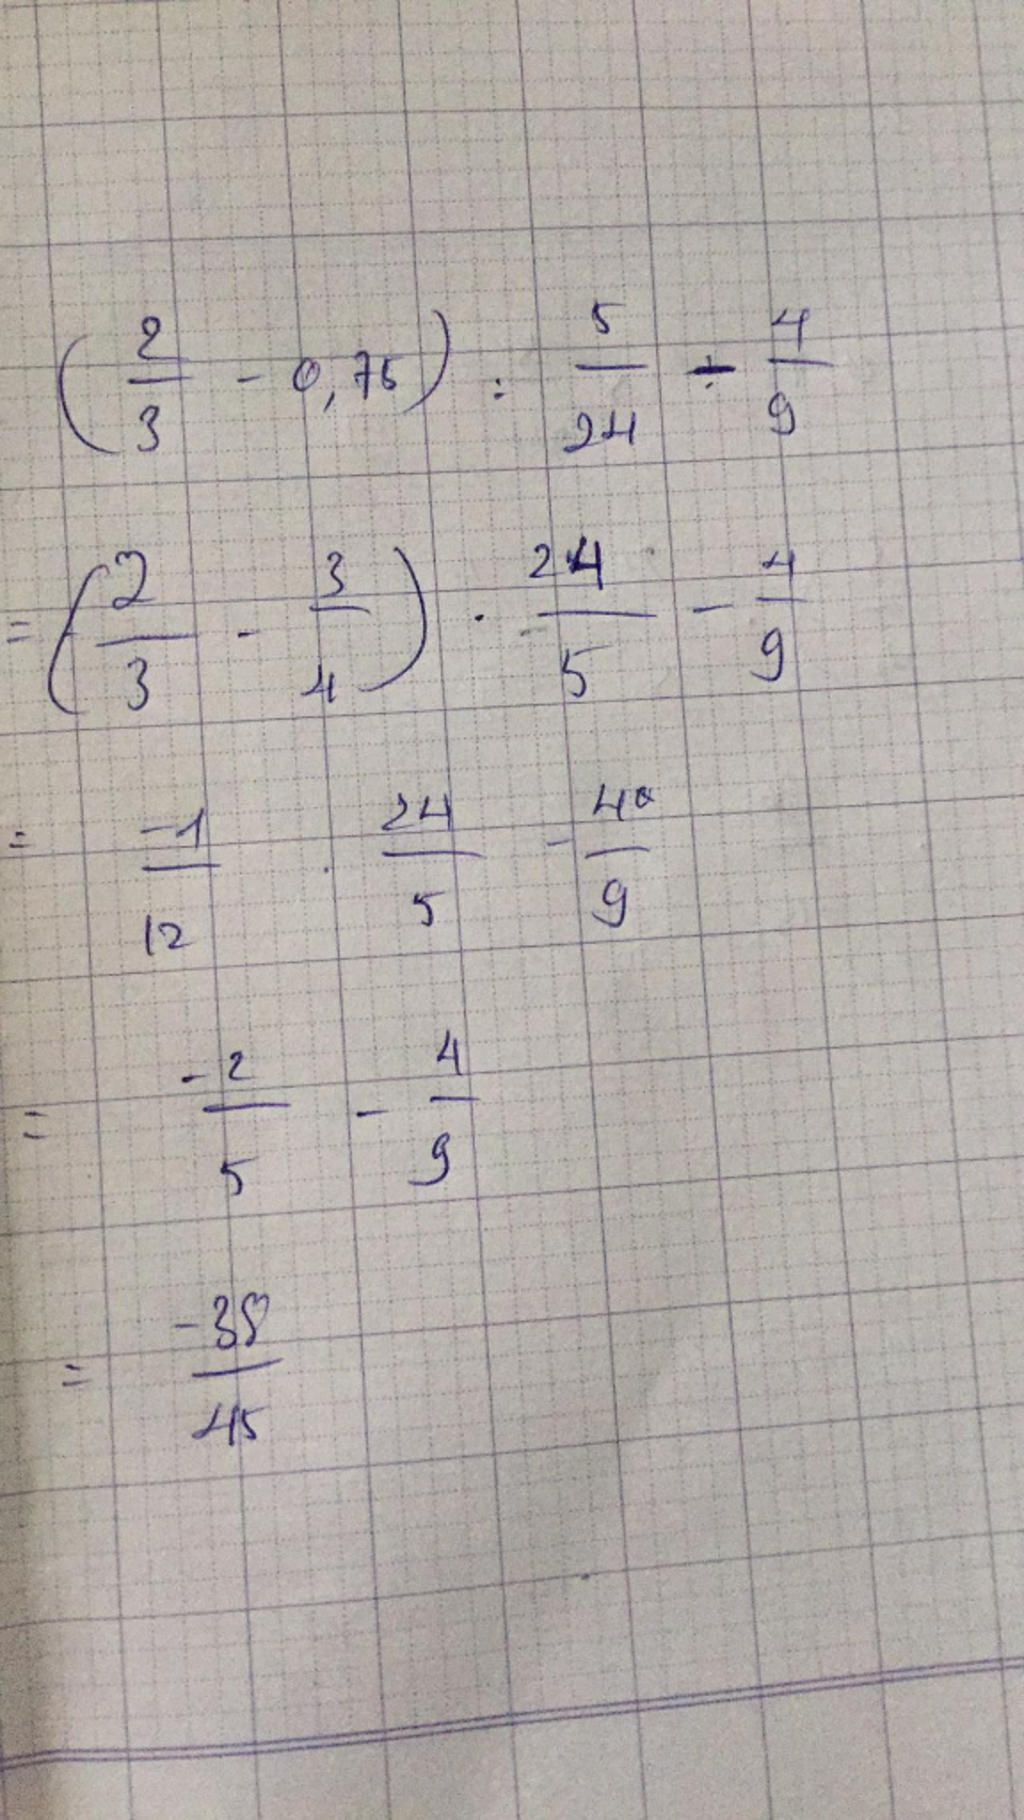 (2/3 - 0,75) : 5/24 - 4/9
= (2/3 - 3/4) . 24/5 - 4/9
= -1/12 . 24/5 - 4/9
= -2/5 - 4/9
= -38/45